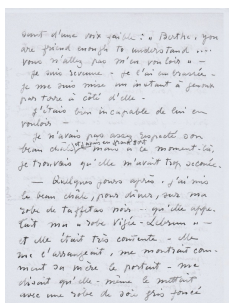 sant d'une voix faible : « Berthe, you
are friend enough to understand ....
vous n'allez pas m'en vouloir » –
Je suis revenue – je l'ai embrassée –
je me suis mise un instant à genoux
par terre à côté d'elle –
J'étais bien incapable de lui en
vouloir –
Je n'avais pas assez respecté son
beau châle, mais à ce moment-là,
je trouvais qu'elle m'avait trop
— Quelques jours après, j'ai mis
le beau châle, pour dîner, sur une
robe de taffetas noir – qu'elle appe-
lait ma « robe Vigée-Lebrun » –
et elle était très contente – Elle
me l'arrangeait, me montrait com-
ment sa mère le portait – me
disait qu'elle-même le mettait
avec une robe de soie gris foncé